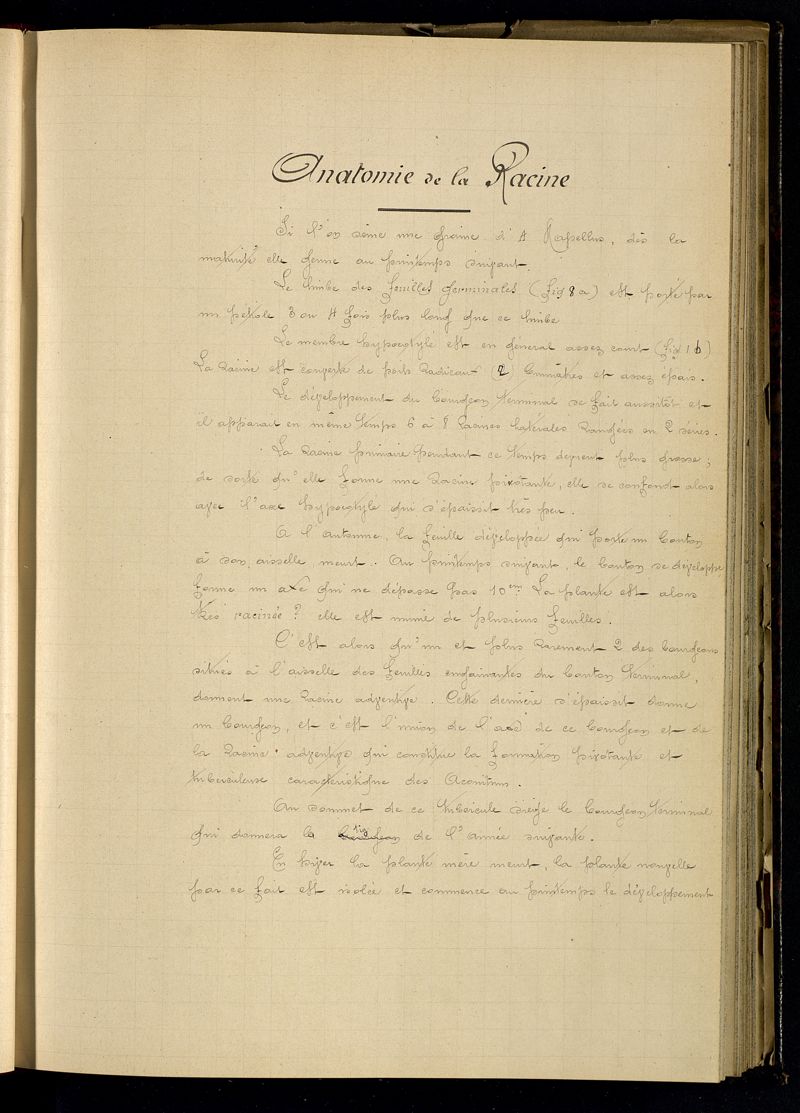 Anatomie de la Racine
Si l'on sème une graine d'A Napellus, dès la
maturité elle germe au printemps suivant.
Le limbe des feuilles germinales (Fig 8 a) est porté par
un pétiole 3 ou 4 fois plus long que ce limbe
Le membre hypocotylé est en général assez court (Fig 1 b)
La Racine est couverte de poils Radicaux (2) et assez épais.
Le développement du bourgeon terminal se fait aussitôt et
il apparait en même temps 6 à 8 Racines latérales Rangées en 2 séries.
La Racine primaire pendant ce temps devient plus grosse ;
de sorte qu'elle forme une Racine pivotante, elle se confond alors
avec l'axe hypocotylé qui s'épaissit très peu.
A l'automne, la feuille développée qui porte un bouton
à son aisselle, meurt. Au printemps suivant, le bouton se développe
forme un axe qui ne dépasse pas 10 cm La plante est alors
très racinée ? elle est munie de plusieurs feuilles.
C'est alors qu'un et plus rarement 2 des bourgeons
situés à l'aisselle des feuilles engainantes du bouton terminal,
donnent une Racine adventive. Cette dernière s'épaissit donne
un bourgeon, et c'est l'union de l'axe de ce bourgeon et de
la Racine adventive qui constitue la formation pivotante et
tuberculeuse caractéristique des Aconitum.
Au sommet de ce tubercule siège le bourgeon terminal
qui donnera la tige de l'année suivante.
En hiver la plante mère meurt, la plante nouvelle
par ce fait est isolée et commence au printemps le développement